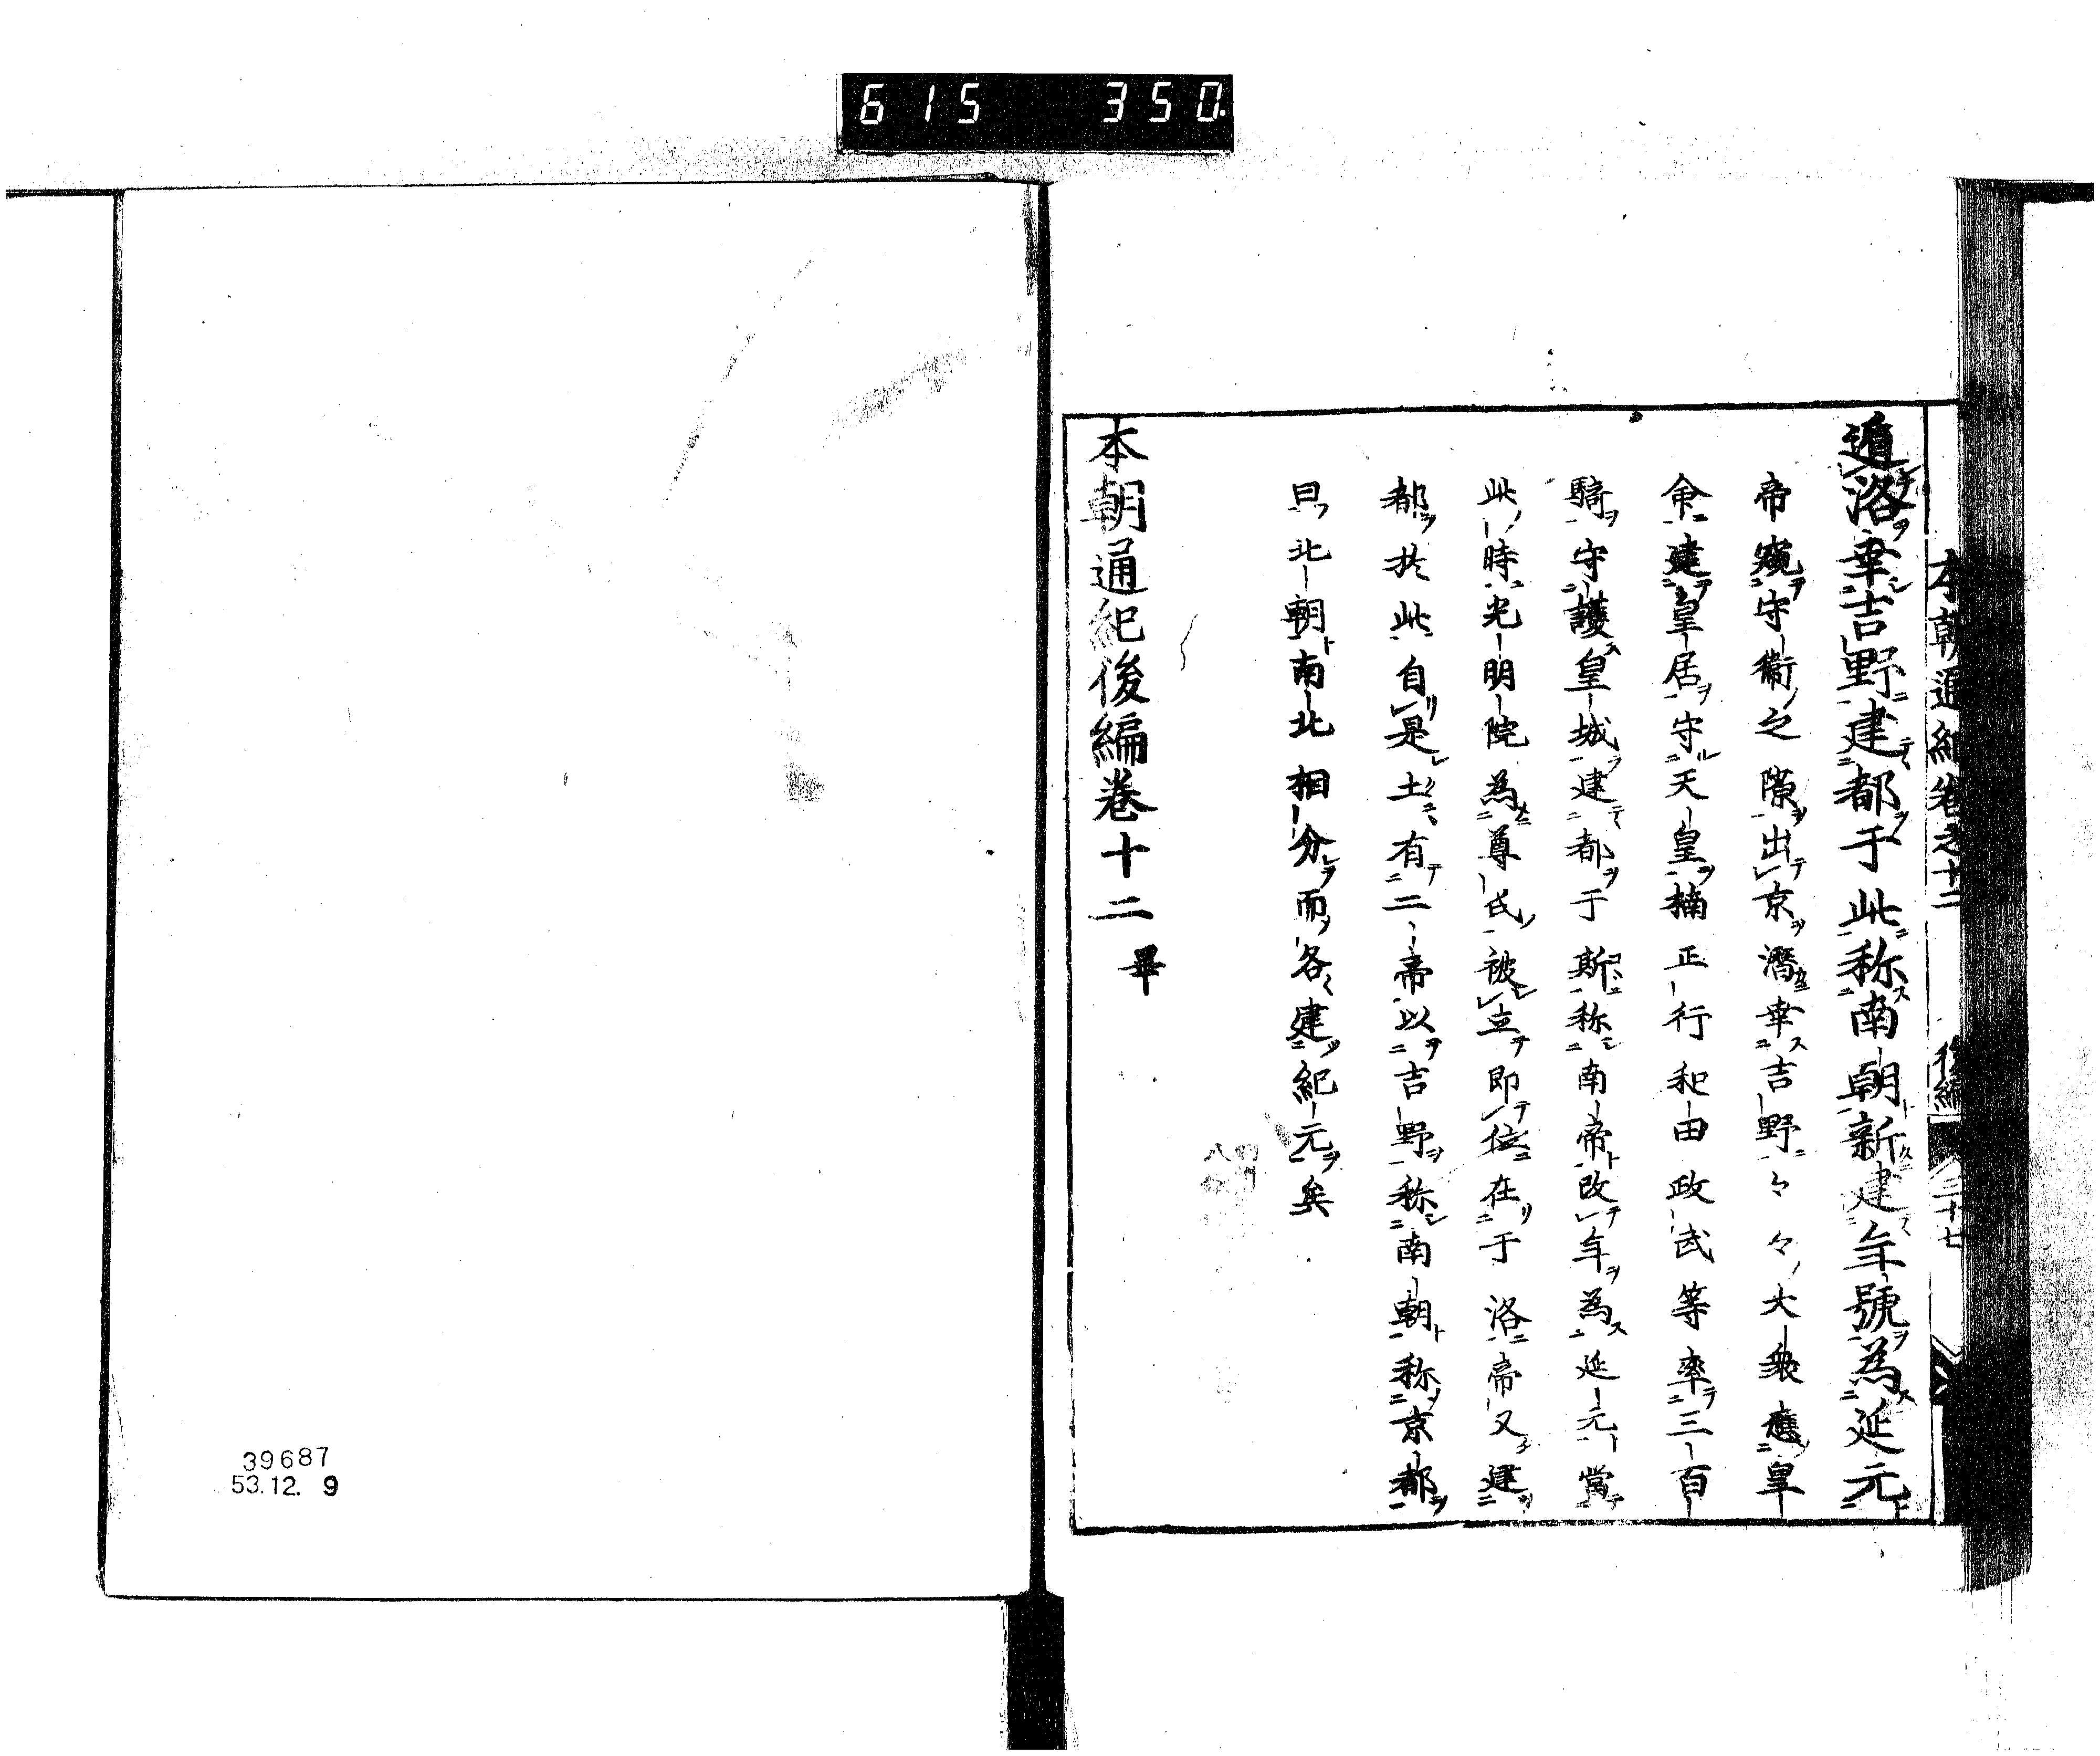 615 350.
本朝通紀卷之十二 後編 三十七
遁洛幸吉野建都于此称南朝新建年號為延元
帝窺守衛之隙出京潜幸吉野々々大衆應皇
命建皇居守天皇楠正行和田政武等率三百
騎守護皇城建都于斯称南帝改年為延元當
此時光明院為尊氏被立即位在于洛帝又建
都於此自是土有二帝以吉野称南朝称京都
曰北朝南北相分而各建紀元矣
本朝通紀後編卷十二畢
39687
53.12.9